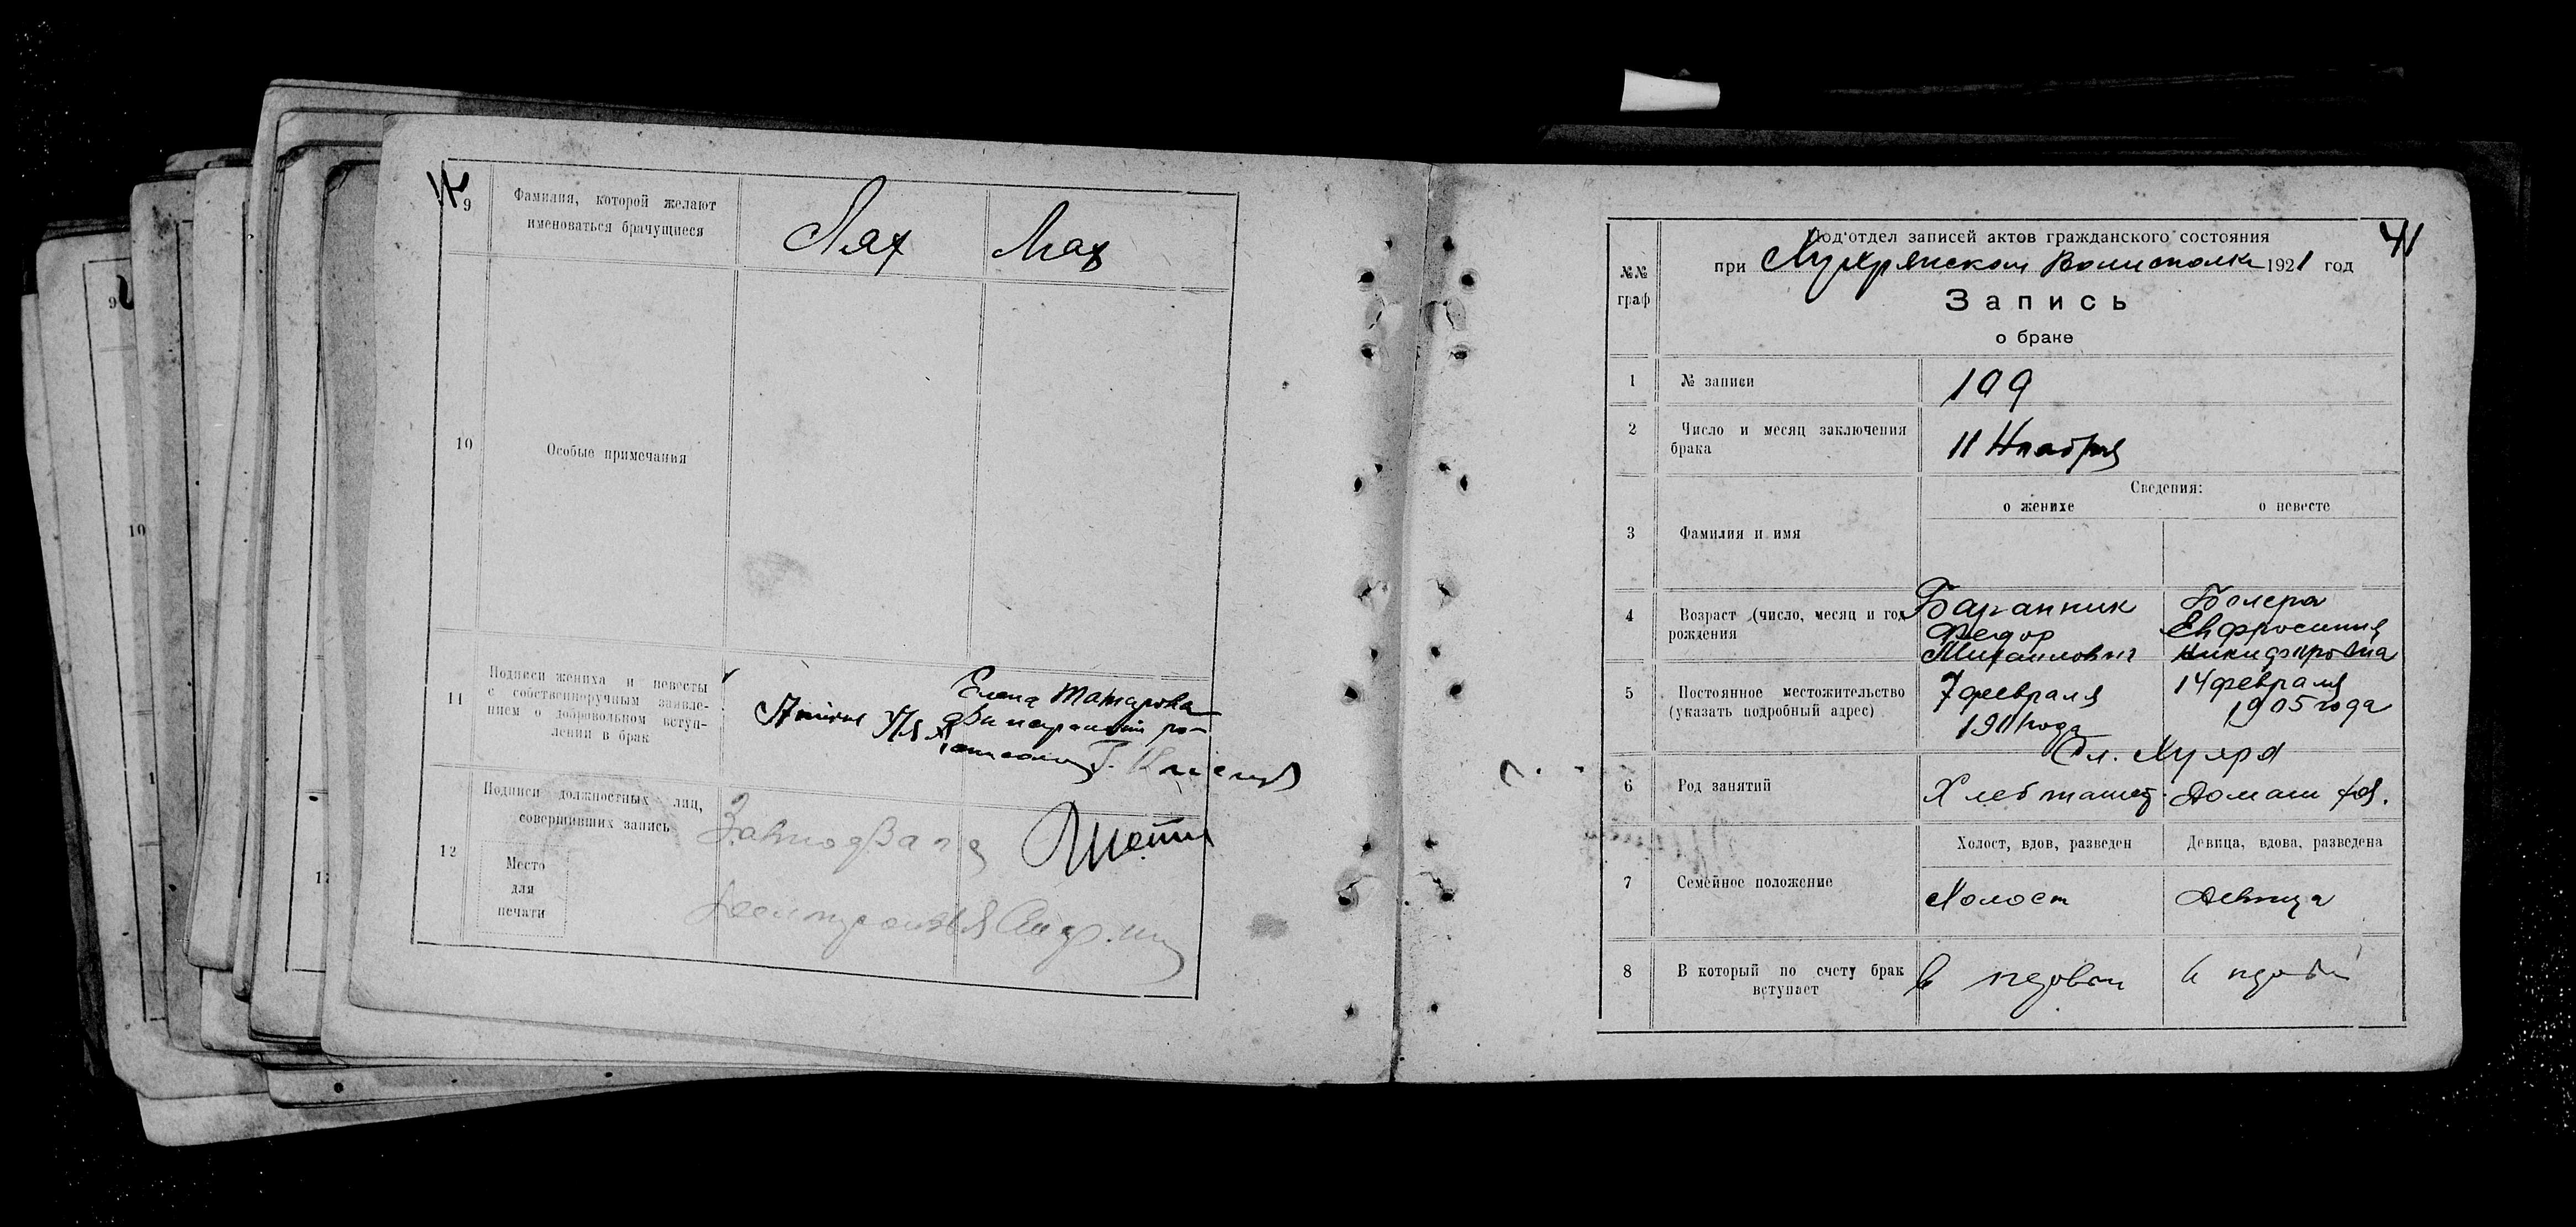 9
Фамилия, которой желают
именоваться брачущиеся
Лях
Лях
10
Особые примечания
11
Подписи жениха и невесты
с собственноручным заявле-
нием о добровольном вступ-
лении в брак
Елена Татарова
Лях
12
Подписи должностных лиц,
совершивших запись
Место
для
печати
41
№№
граф
Под'отдел записей актов гражданского состояния
при 1921 год
Запись
о браке
1
№ записи
109
2
Число и месяц заключения
брака
11 Ноября
Сведения:
о женихе
о невесте
3
Фамилия и имя
4
Возраст (число, месяц и год
рождения
Баранник
Федор
Михайлович
Евфросиния
Никифоровна
5
Постоянное местожительство
(указать подробный адрес)
7 февраля
1911 года
14 февраля
1905 года
Сл.
6
Род занятий
Хлебопашец
Домаш хоз.
Холост, вдов, разведен
Девица, вдова, разведена
7
Семейное положение
Холост
Девица
8
В который по счету брак
вступает
в первый
в первый